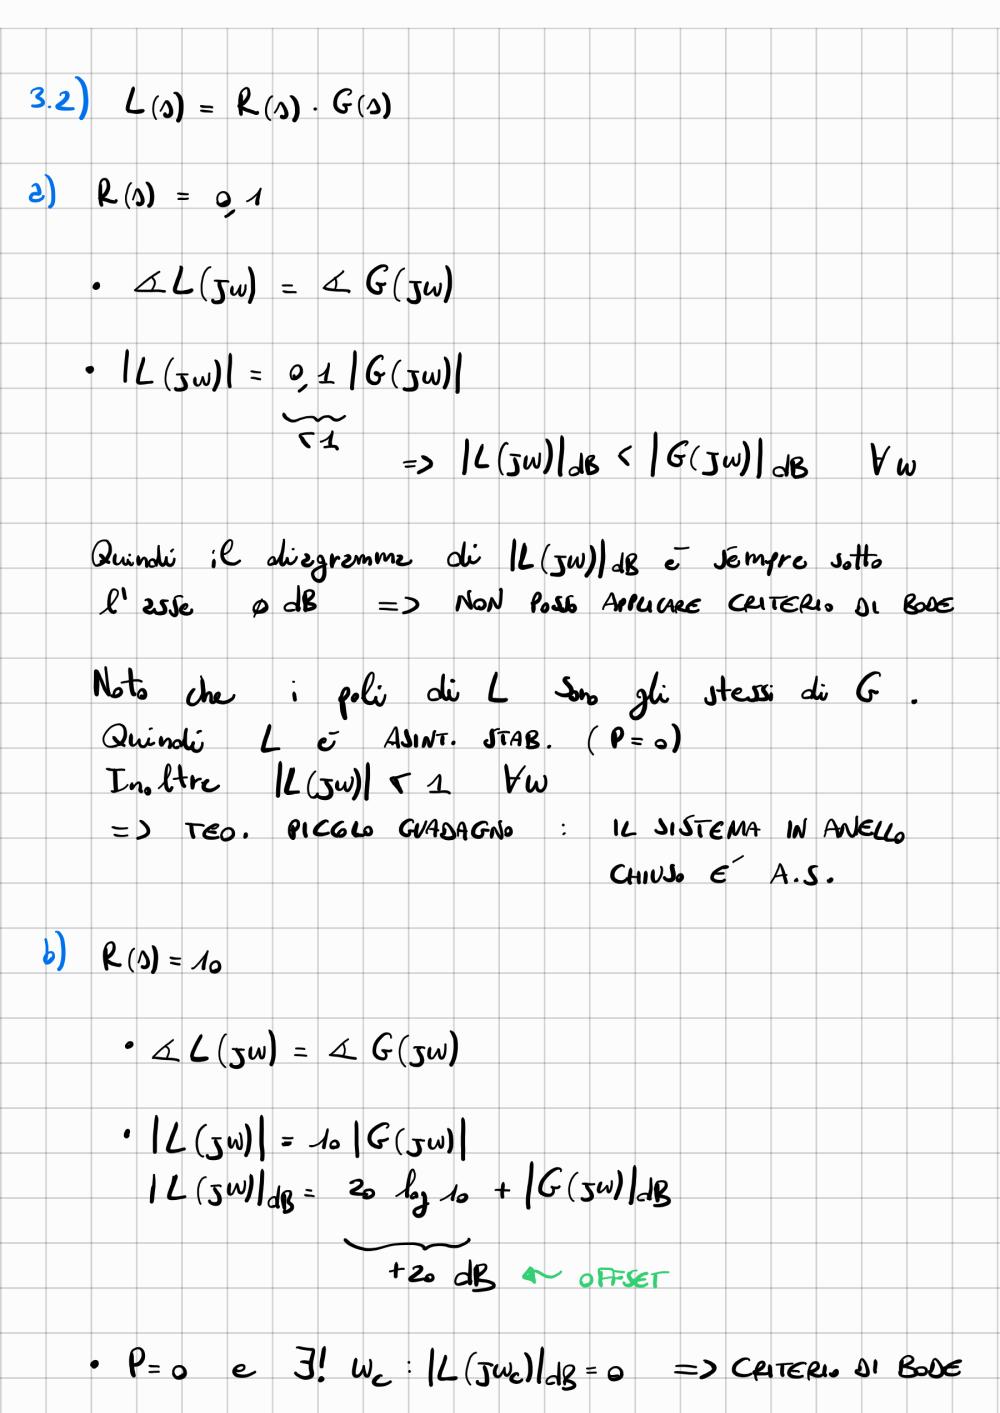 3.2) L(s) = R(s) · G(s)
a) R(s) = 0,1
• ∡L(jω) = ∡ G(jω)
• |L(jω)| = 0,1 |G(jω)|
< 1
=> |L(jω)|dB < |G(jω)|dB ∀ω
Quindi il diagramma di |L(jω)|dB è sempre sotto
l'asse 0 dB => NON POSSO APPLICARE CRITERIO DI BODE
Noto che i poli di L sono gli stessi di G.
Quindi L è ASINT. STAB. (P=0)
Inoltre |L(jω)| < 1 ∀ω
=> TEO. PICCOLO GUADAGNO : IL SISTEMA IN ANELLO
CHIUSO E' A.S.
b) R(s) = 10
• ∡L(jω) = ∡ G(jω)
• |L(jω)| = 10 |G(jω)|
|L(jω)|dB = 20 log 10 + |G(jω)|dB
+20 dB ← OFFSET
• P=0 e ∃! ωc : |L(jωc)|dB = 0 => CRITERIO DI BODE